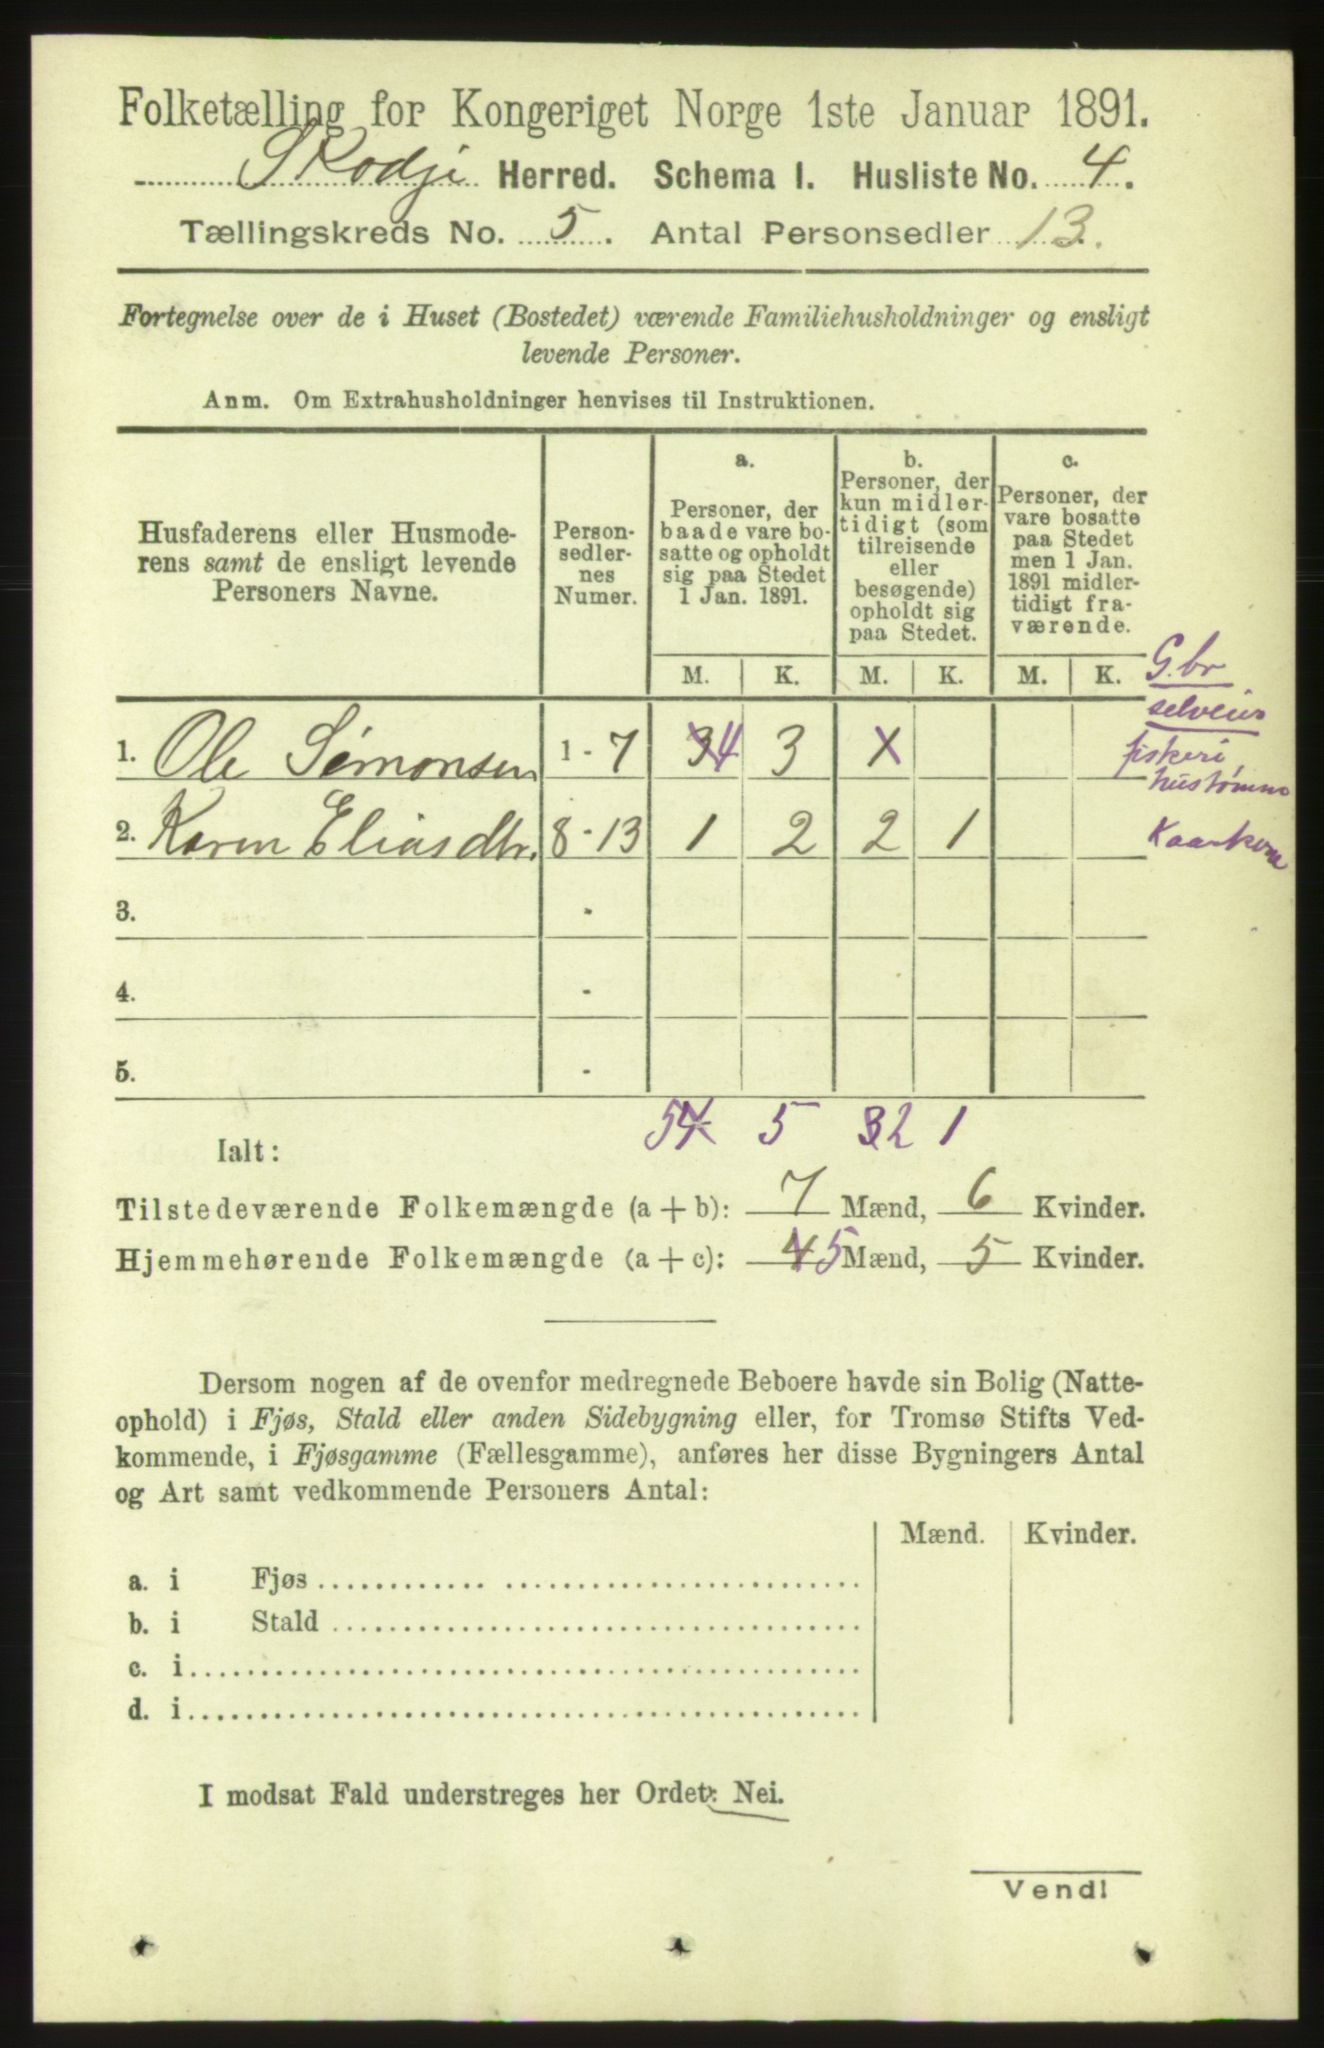 Folketælling for Kongeriget Norge 1ste Januar 1891.
Skodje Herred. Schema I. Husliste No. 4.
Tællingskreds No. 5. Antal Personsedler 13.
Fortegnelse over de i Huset (Bostedet) værende Familiehusholdninger og ensligt
levende Personer.
Anm. Om Extrahusholdninger henvises til Instruktionen.
Husfaderens eller Husmode-
rens samt de ensligt levende
Personers Navne.
Person-
sedler-
nes
Numer.
a.
Personer, der
baade vare bo-
satte og opholdt
sig paa Stedet
1 Jan. 1891.
b.
Personer, der
kun midler-
tidigt (som
tilreisende
eller
besøgende)
opholdt sig
paa Stedet.
c.
Personer, der
vare bosatte
paa Stedet
men 1 Jan.
1891 midler-
tidigt fra-
værende.
M. K. M. K. M. K.
G.br
selveier
fiskeri,
hustømm
1. Ole Simonsen 1 - 7 3 4 3 X
2. Karen Eliasdtr. 8 - 13 1 2 2 1
Kaarkone
3. -
4. -
5. -
Ialt: 5 4 5 3 2 1
Tilstedeværende Folkemængde (a + b): 7 Mænd, 6 Kvinder.
Hjemmehørende Folkemængde (a + c): 4 5 Mænd, 5 Kvinder.
Dersom nogen af de ovenfor medregnede Beboere havde sin Bolig (Natte-
ophold) i Fjøs, Stald eller anden Sidebygning eller, for Tromsø Stifts Ved-
kommende, i Fjøsgamme (Fællesgamme), anføres her disse Bygningers Antal
og Art samt vedkommende Personers Antal:
Mænd. Kvinder.
a. i Fjøs
b. i Stald
c. i
d. i
I modsat Fald understreges her Ordet: Nei.
Vend!